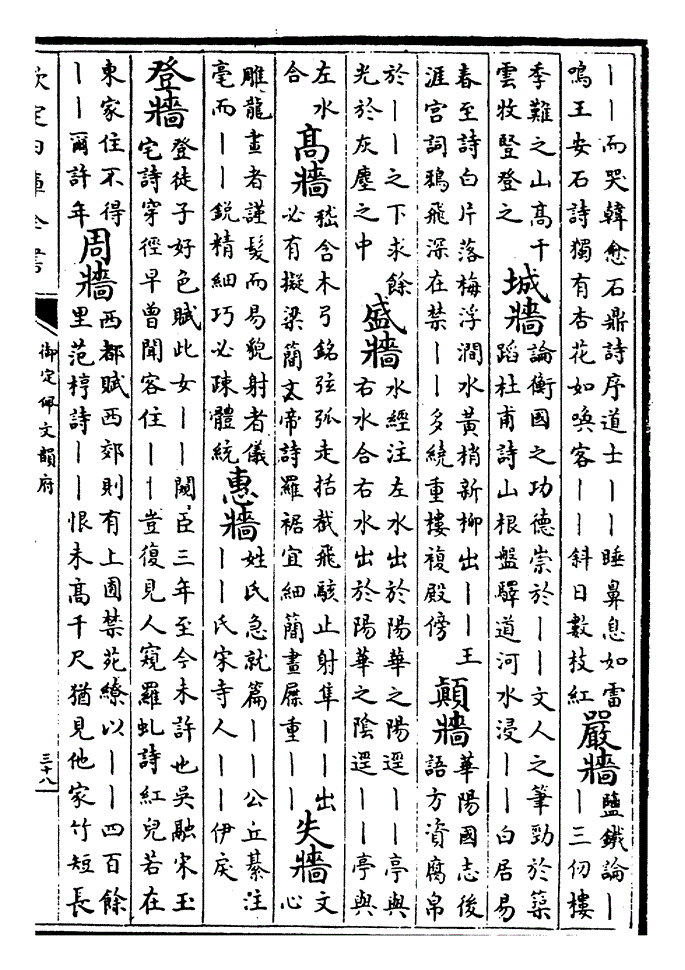 ｜｜而哭韓愈石鼎詩序道士｜｜睡鼻息如雷
鳴王安石詩獨有杏花如喚客｜｜斜日數枝紅
嚴牆
鹽鐵論｜
｜三仞樓
季難之山髙千
雲牧豎登之
城牆
論衡國之功德崇於｜｜文人之筆勁於築
蹈杜甫詩山根盤驛道河水浸｜｜白居易
春至詩白片落梅浮澗水黄梢新柳出｜｜王
涯宫詞鵶飛深在禁｜｜多繞重樓複殿傍
顛牆
華陽國志後
語方資腐帛
於｜｜之下求餘
光於灰塵之中
盛牆
水經注左水出於陽華之陽逕｜｜亭與
右水合右水出於陽華之陰逕｜｜亭與
左水
合
髙牆
嵇含木弓銘弦弧走括截飛駭止射隼｜｜出
必有擬梁簡文帝詩羅裾宜細簡畫屧重｜｜
失牆
文
心
雕龍畫者謹髮而易貌射者儀
毫而｜｜鋭精細巧必疎體統
惠牆
姓氏急就篇｜｜公丘綦注
｜｜氏宋寺人｜｜伊戾
登牆
登徒子好色賦此女｜｜闚臣三年至今未許也吳融宋玉
宅詩穿徑早曾聞客住｜｜豈復見人窺羅虬詩紅兒若在
東家住不得
｜｜爾許年
周牆
西都賦西郊則有上囿禁苑繚以｜｜四百餘
里范梈詩｜｜恨未髙千尺猶見他家竹短長
欽定四庫全書
御定佩文韻府
三十八